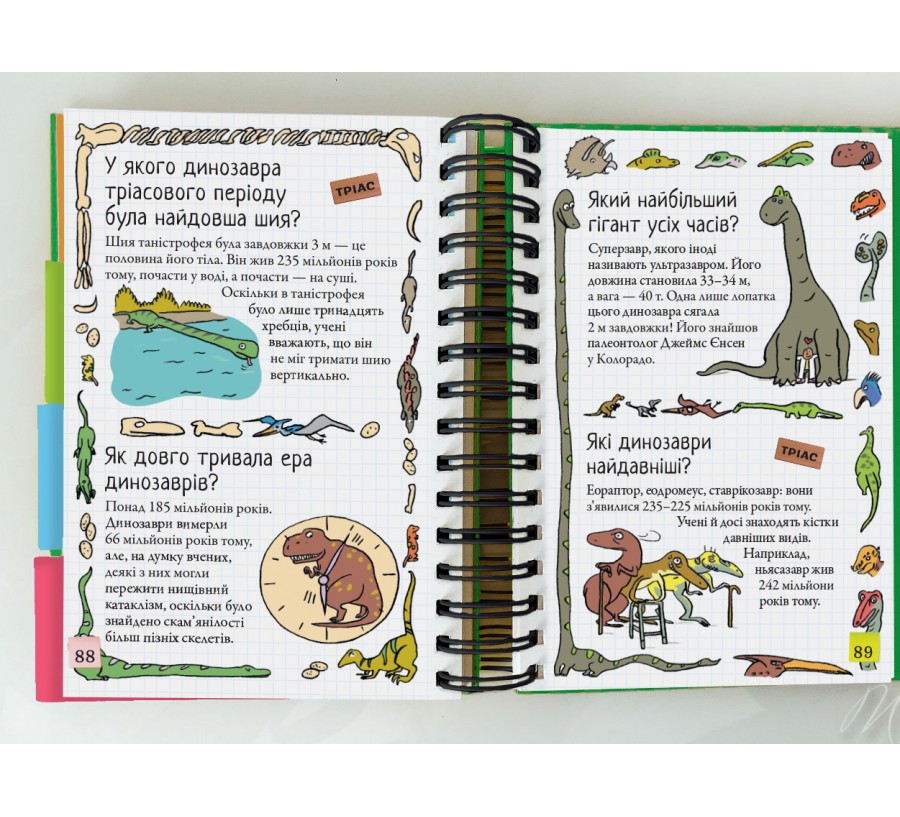 У якого динозавра
тріасового періоду
була найдовша шия?
ТРІАС
Шия таністрофея була завдовжки 3 м — це
половина його тіла. Він жив 235 мільйонів років
тому, почасти у воді, а почасти — на суші.
Оскільки в таністрофея
було лише тринадцять
хребців, учені
вважають, що він
не міг тримати шию
вертикально.
Як довго тривала ера
динозаврів?
Понад 185 мільйонів років.
Динозаври вимерли
66 мільйонів років тому,
але, на думку вчених,
деякі з них могли
пережити нищівний
катаклізм, оскільки було
знайдено скам'янілості
більш пізніх скелетів.
88
Який найбільший
гігант усіх часів?
Суперзавр, якого іноді
називають ультразавром. Його
довжина становила 33–34 м,
а вага — 40 т. Одна лише лопатка
цього динозавра сягала
2 м завдовжки! Його знайшов
палеонтолог Джеймс Єнсен
у Колорадо.
Які динозаври
найдавніші?
ТРІАС
Еораптор, еодромеус, ставрікозавр: вони
з'явилися 235–225 мільйонів років тому.
Учені й досі знаходять кістки
давніших видів.
Наприклад,
ньясазавр жив
242 мільйони
років тому.
89